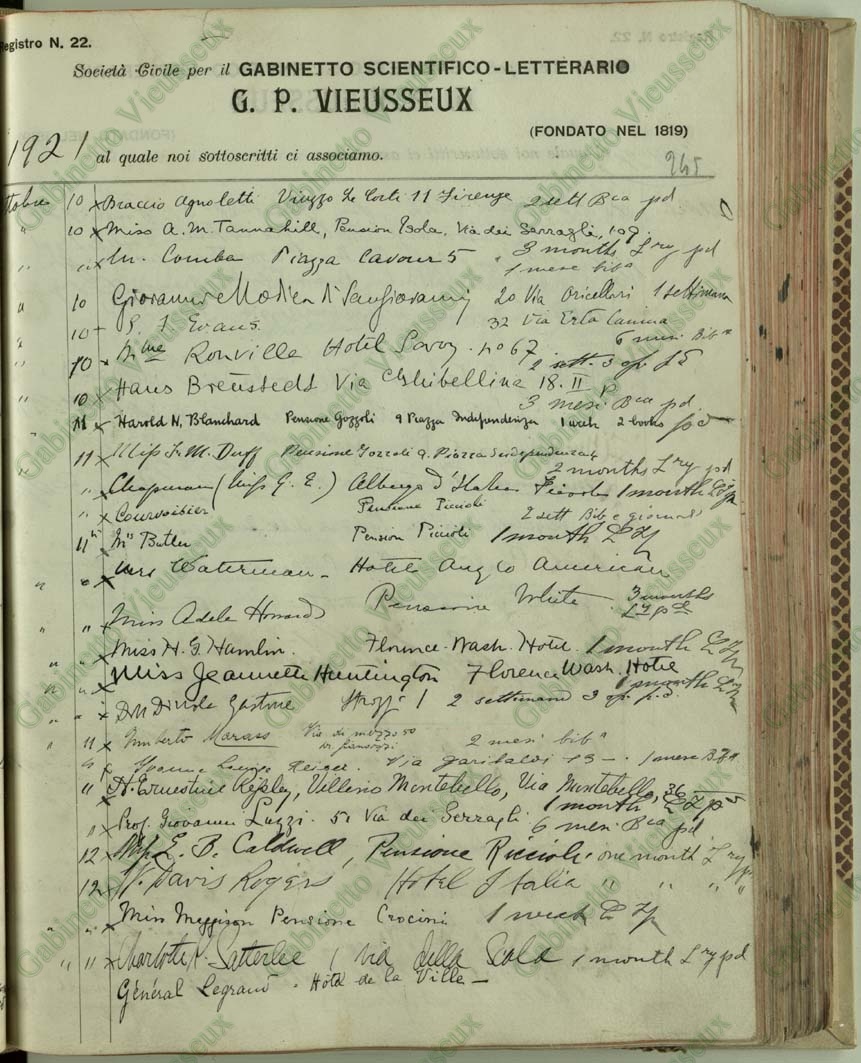 Registro N. 22.
Società Civile per il GABINETTO SCIENTIFICO-LETTERARIO
G. P. VIEUSSEUX
(FONDATO NEL 1819)
1921 al quale noi sottoscritti ci associamo.
245
10 x Braccio Agnoletti Viuzzo Le Corti 11 Firenze 2 sett Bca pd
" 10 x Miss A. M. Tannahill, Pension Isola, Via dei Serragli, 109.
3 months Lry pd
" " x Comba Piazza Cavour 5 1 mese bib
" 10 Giovanni 20 Via Oricellari 1 settimana
10 - Evans. 32 Via Erta Canina
6 mesi Bib
10 x Mme Ronville Hotel Savoy. no 67 2 sett. 3 op.
10 x Hans Via Ghibellina 18. II
3 mesi Bca pd
11 x Harold N. Blanchard Pensione Gozzoli 9 Piazza Independenza 1 week 2 books pd
11 x Miss Duff Pensione Gozzoli 9. Piazza Independenza
2 months Lry pd
" x Chapman (Miss G. E.) Albergo d'Italia 1 month
" x Courvoisier Pensione Piccioli 2 sett Bib e giornali
11 x Mrs Butler Pension Piccioli 1 month
" x Mrs Waterman - Hotel Anglo American
Miss Adele Howard Pensione White 3 months
" " x Miss H. G. Hamlin. Florence. Wash. Hotel. 1 month
" " x Miss Jeannette Huntington Florence Wash. Hotel
1 month
" " x Gastone Strozzi 1 2 settimane 3 op. pd.
" 11 x Umberto Marass Via di mezzo 50 2 mesi bib
Via Garibaldi 13 - 1 mese
11 x Ernestine Villino Montebello, Via Montebello, 36
1 month
" x Prof. Giovanni Luzzi. 51 Via dei Serragli 6 mesi Bca pd
12 x Miss E. B. Caldwell, Pensione Riccioli one month Lry
12 x W. Davis Rogers Hotel Italia " " " "
" " x Miss Meggison Pensione Crocini 1 week
" " x Charlotte Satterlee 1 Via della Scala 1 month Lry pd
Général Legrand. Hôtel de la Ville -
Gabinetto Vieusseux